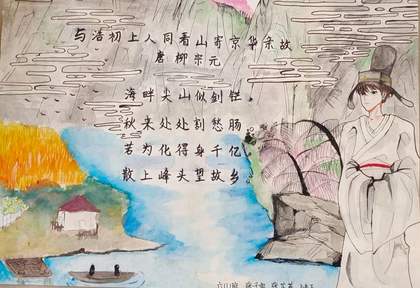 与浩初上人同看山寄京华亲故
唐 柳宗元
海畔尖山似剑铓。
秋来处处割愁肠。
若为化得身千亿。
散上峰头望故乡。